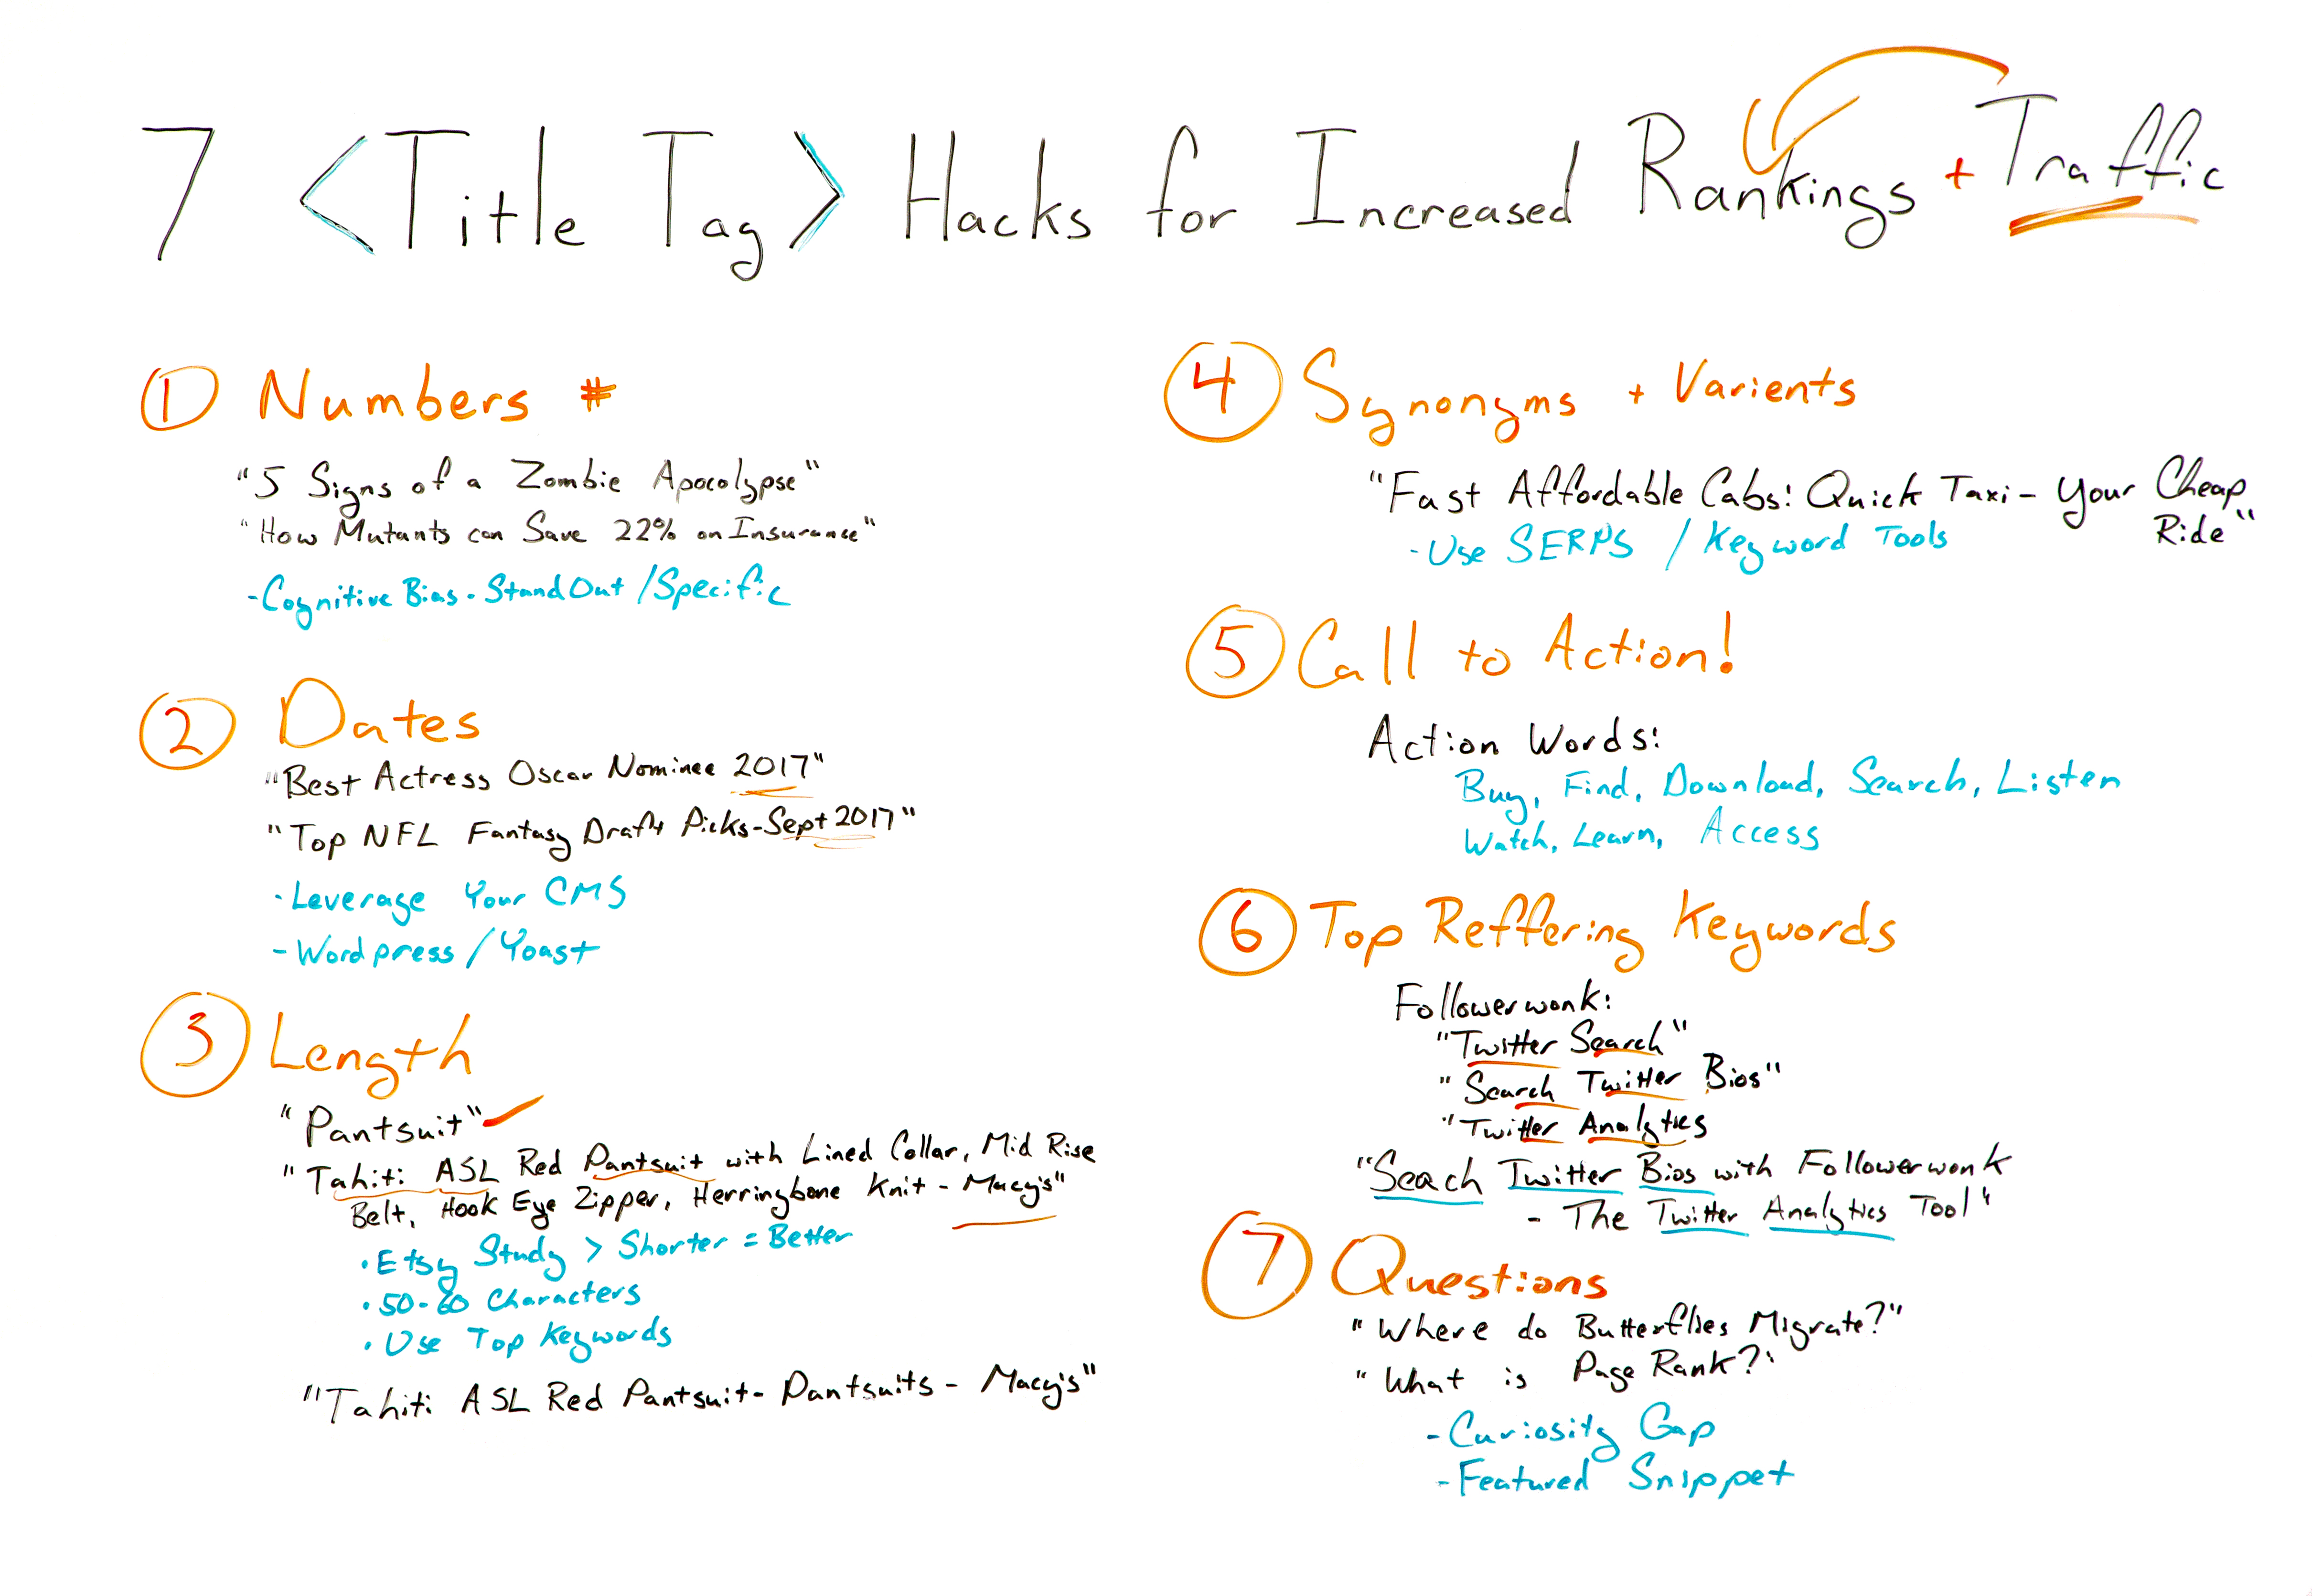 7 <Title Tag> Hacks for Increased Rankings + Traffic
1 Numbers #
"5 Signs of a Zombie Apocolypse"
"How Mutants can Save 22% on Insurance"
- Cognitive Bias - Stand Out / Specific
2 Dates
"Best Actress Oscar Nominee 2017"
"Top NFL Fantasy Draft Picks - Sept 2017"
- Leverage Your CMS
- Wordpress / Yoast
3 Length
"Pantsuit"
"Tahiti ASL Red Pantsuit with Lined Collar, Mid Rise
Belt, Hook Eye Zipper, Herringbone Knit - Macy's"
• Etsy Study > Shorter = Better
• 50-60 Characters
• Use Top Keywords
"Tahiti ASL Red Pantsuit - Pantsuits - Macy's"
4 Synonyms + Varients
"Fast Affordable Cabs: Quick Taxi - Your Cheap
Ride"
- Use SERPS / Keyword Tools
5 Call to Action!
Action Words:
Buy, Find, Download, Search, Listen
Watch, Learn, Access
6 Top Reffering Keywords
Followerwonk:
"Twitter Search"
"Search Twitter Bios"
"Twitter Analytics
"Seach Twitter Bios with Followerwonk
- The Twitter Analytics Tool"
7 Questions
"Where do Butterflies Migrate?"
"What is Page Rank?"
- Curiosity Gap
- Featured Snippet